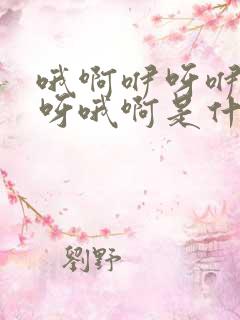 哦啊咿呀咿
呀哦啊是什
劉野